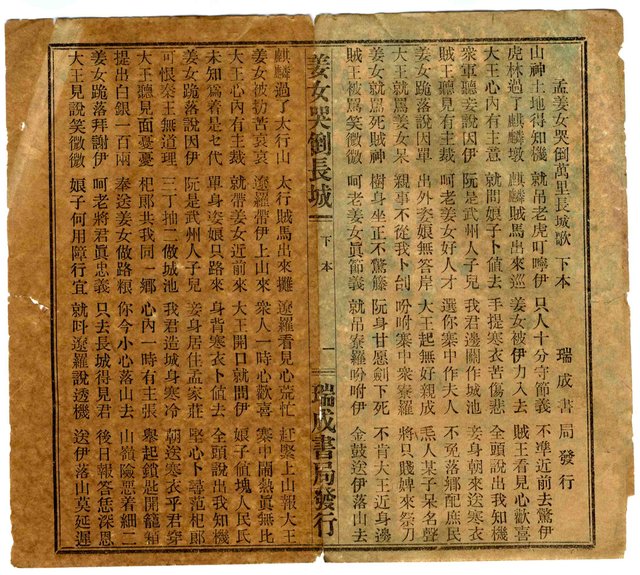 孟姜女哭倒萬里長城歌 下本 瑞成書局發行
山神土地得知機 就吊老虎叮嚀伊 只人十分守節義 不準近前去驚伊
虎林過了麒麟墩 麒麟賊馬出來巡 姜女被伊力入去 賊王看見心歡喜
大王心內有主意 就問娘子卜值去 手提寒衣苦傷悲 全頭說出我知機
衆軍聽妾說因伊 阮是武州人子兒 我君邊關作城池 妾身朝來送寒衣
賊王聽見有主裁 呵老姜女好人才 選你寨中作夫人 不免落鄉配庶民
姜女跪落說因單 出外恣娘無答岸 大王起無好親成 炁人某子呆名聲
大王就罵姜女呆 親事不從我卜刣 吩咐寨中衆寮羅 將只賤婢來祭刀
姜女就罵死賊神 樹身坐正不驚籐 阮身甘愿劍下死 不肯大王近身邊
賊王被罵笑微微 呵老姜女眞節義 就吊寮羅吩咐伊 金鼓送伊落山去
姜女哭倒長城 下本 一 瑞成書局發行
麒麟過了太行山 太行賊馬出來攤 遼羅看見心荒忙 赶緊上山報大王
姜女被扐苦哀哀 遼羅帶伊上山來 衆人一時心歡喜 寨中鬧熱眞無比
大王心內有主裁 就帶姜女近前來 大王開口就問伊 娘子值塊人民氏
未知為着是乜代 單身恣娘只路來 身背寒衣卜值去 全頭說出我知機
姜女跪落說因伊 阮是武州人子兒 妾身居住孟家庄 堅心卜尋范杞郎
可恨秦王無道理 三丁抽二做城池 我君造城身寒冷 朝送寒衣乎君穿
大王聽見面憂憂 杞郎共我同一鄉 心內一時有主張 舉起鎖匙開籠箱
提出白銀一百兩 奉送姜女做路粮 你今小心落山去 山嶺險惡着細二
姜女跪落拜謝伊 呵老將君眞忠義 只去長城得見君 後日報答恁深恩
大王見說笑微微 娘子何用障行宜 就叫遼羅說透機 送伊落山莫延遲